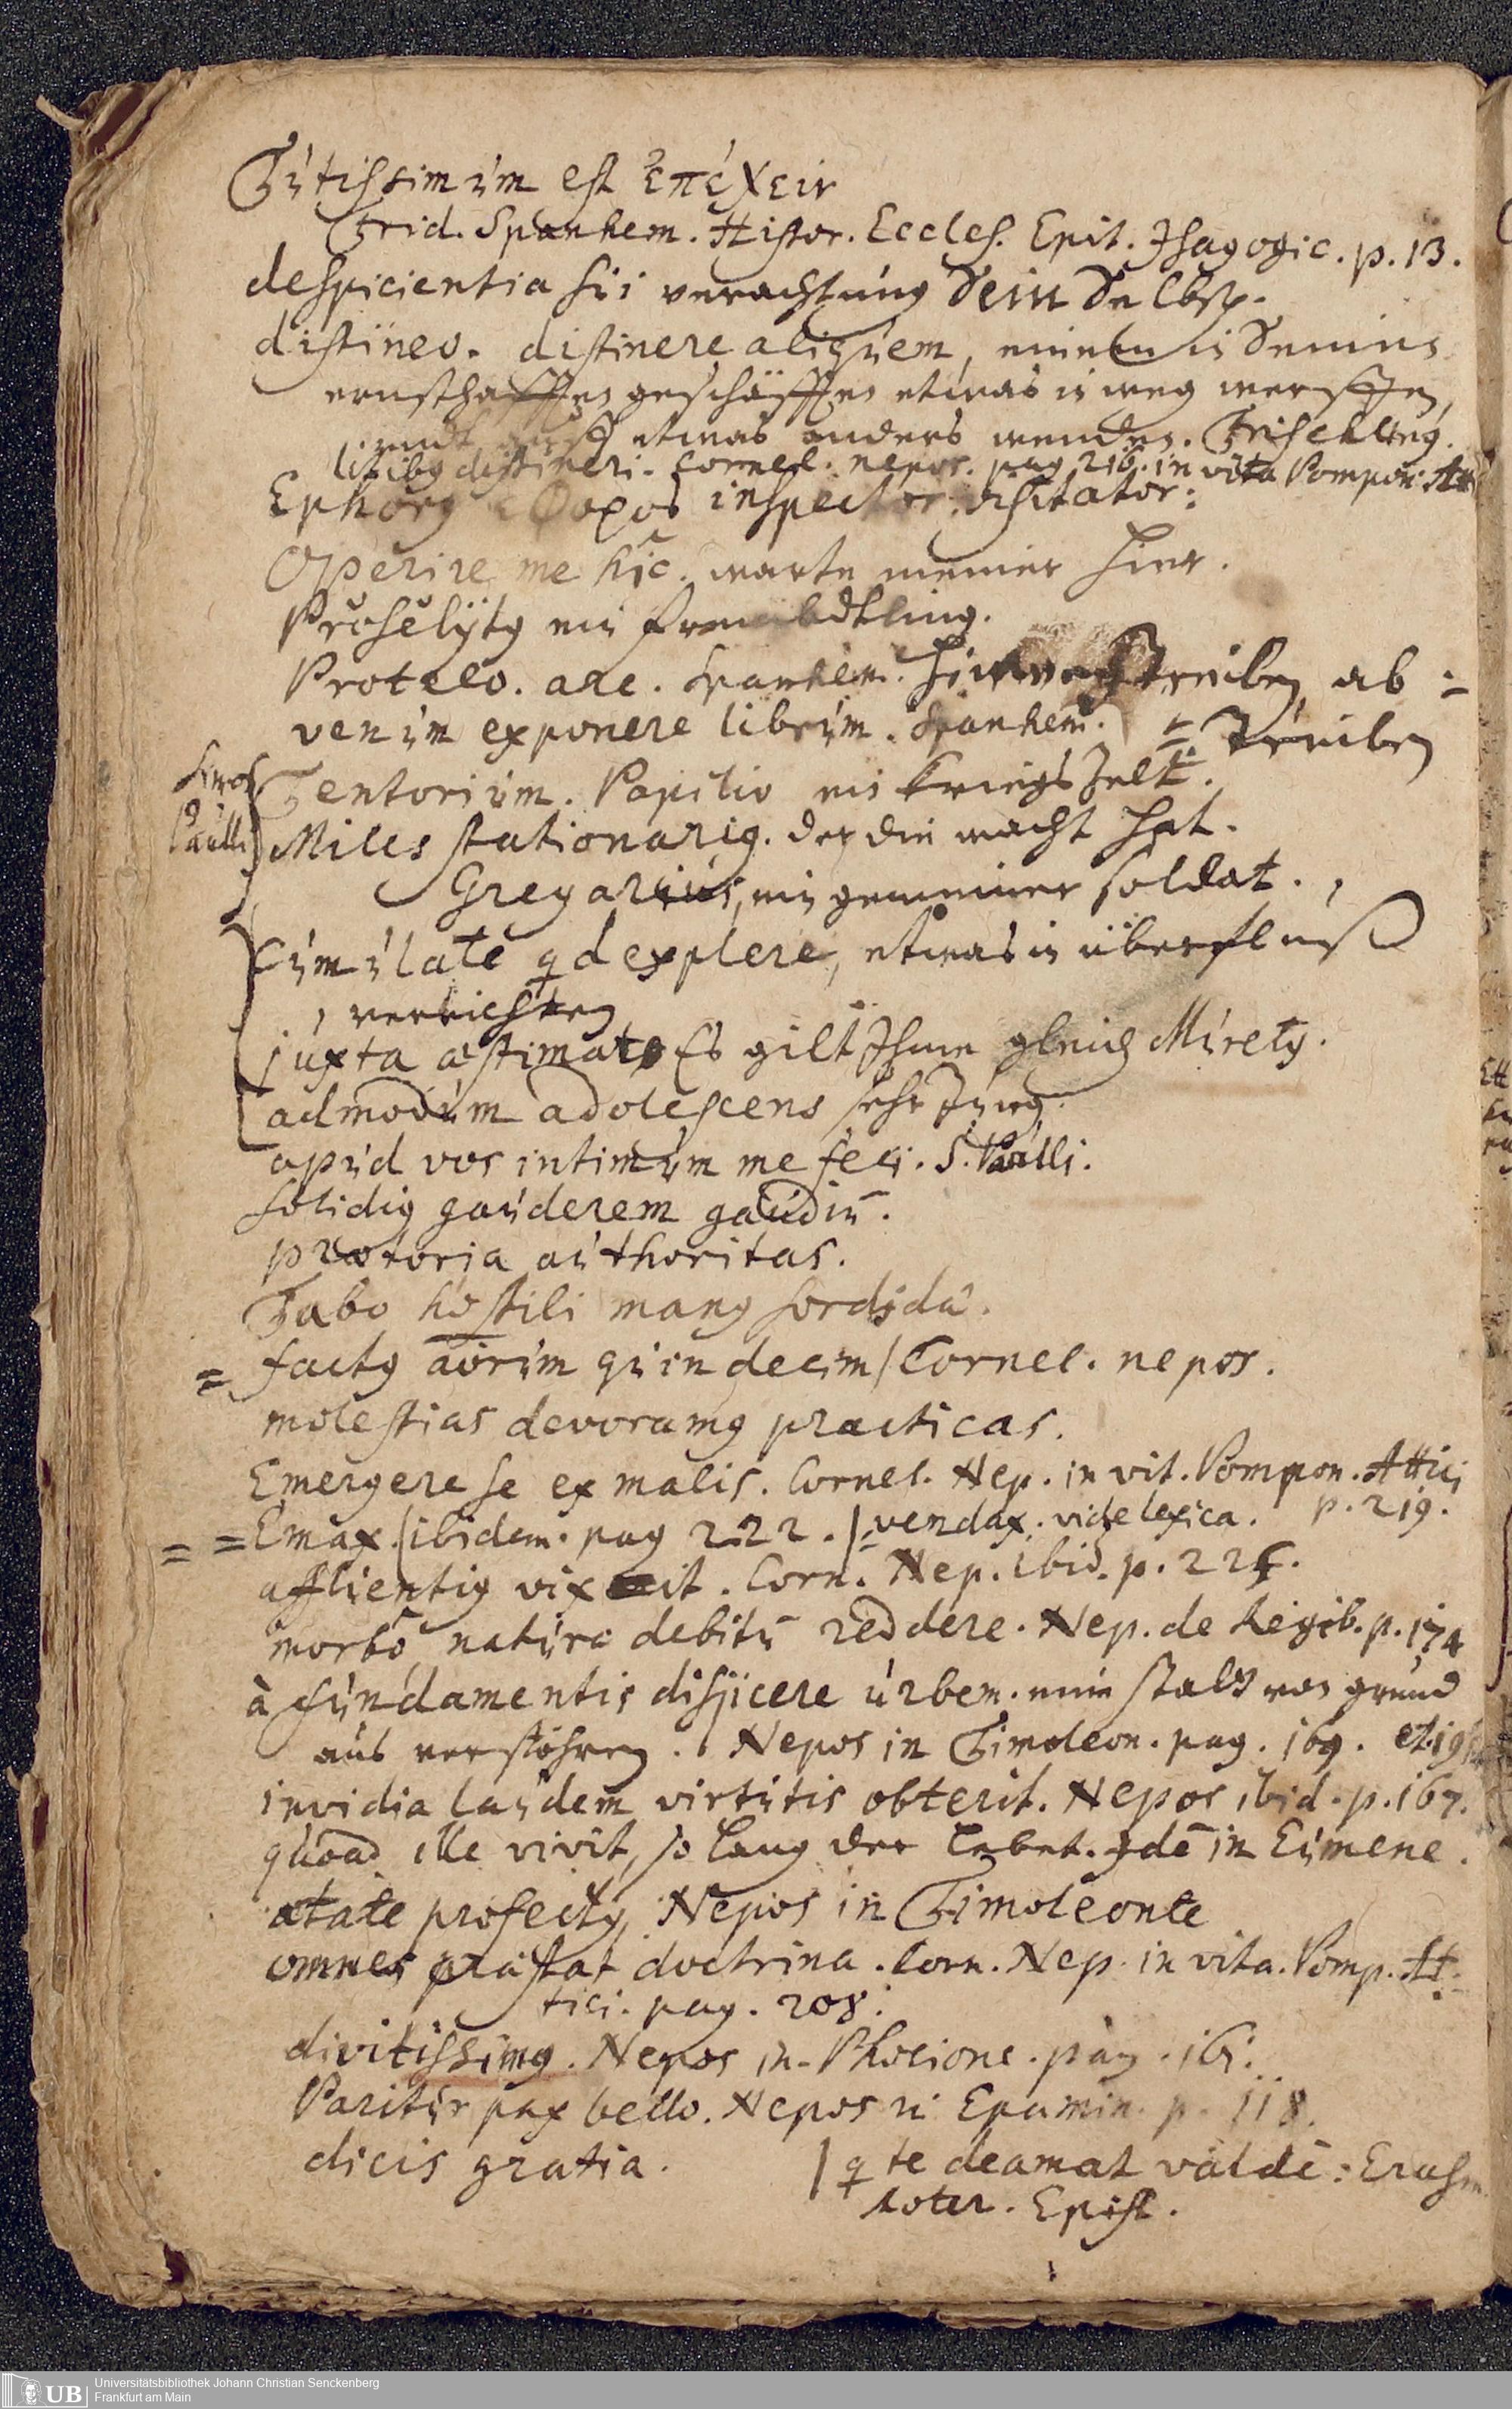 Tutissimum est ἐπέχειν
Frid. Spanhem. Histor. Eccles. Epit. Isagogic. p. 13.
despicientia sui verachtung sein selbst.
distineo. distinere aliquem, einen in seinen
ernsthafften geschäfften etwas in weg werffen,
etwas anders wenden. Frischling.
litibus distineri. Cornel. nepos. pag 216. in vita Pompon. Att
Ephorus Φορος inspector. visitator.
Operire me hîc. warte meiner hier.
Proselÿtus ein frembdtling.
Protelo. are. Spanhem. hinweg treiben, ab =
venum exponere librum. Spanhem. = treiben
Simon
Paulli
Tentorium. Papilio ein kriegs Zelt.
Miles stationarius. der die wacht hat.
Gregarius, ein gemeiner soldat.
Cumulatè qd explere, etwas in überfluß
verrichten
juxta æstimat, Es gilt Ihme gleich Muretus.
admodum adolescens sehr Jung.
apud vos intimum me feci. S. Paulli.
solidius gauderem gaudiū.
prætoria authoritas.
Tabo hostili manus sordidâ.
= factus annorum quindecim / Cornel. nepos.
molestias devoramus practicas.
Emergere se ex malis. Cornel. Nep. in vit. Pompon. Attici
p. 219.
= = Emax. / ibidem. pag 222. / = vendax. vide lexica.
affluentius vixit. Corn. Nep. ibid. p. 225.
morbo naturæ debitū reddere. Nep. de Regib. p. 174
à fundamentis disjicere urbem. eine stadt von grund
aus verstöhren. Nepos in Timoleon. pag. 169. et 19
invidia laudem virtutis obterit. Nepos ibid. p. 167.
quoad ille vivit, so lang der lebet. idē in Eumene.
ætate profectus, Nepos in Timoleonte
omnes præstat doctrina. Corn. Nep. in vita. Pomp. At=
tici. pag. 208.
divitissimus. Nepos in Phocione. pag. 161.
Paritur pax bello. Nepos in Epamin. p. 118.
dicis gratia. / q te deamat valdè: Erasm.
Roter. Epist.
Universitätsbibliothek Johann Christian Senckenberg
Frankfurt am Main
UB